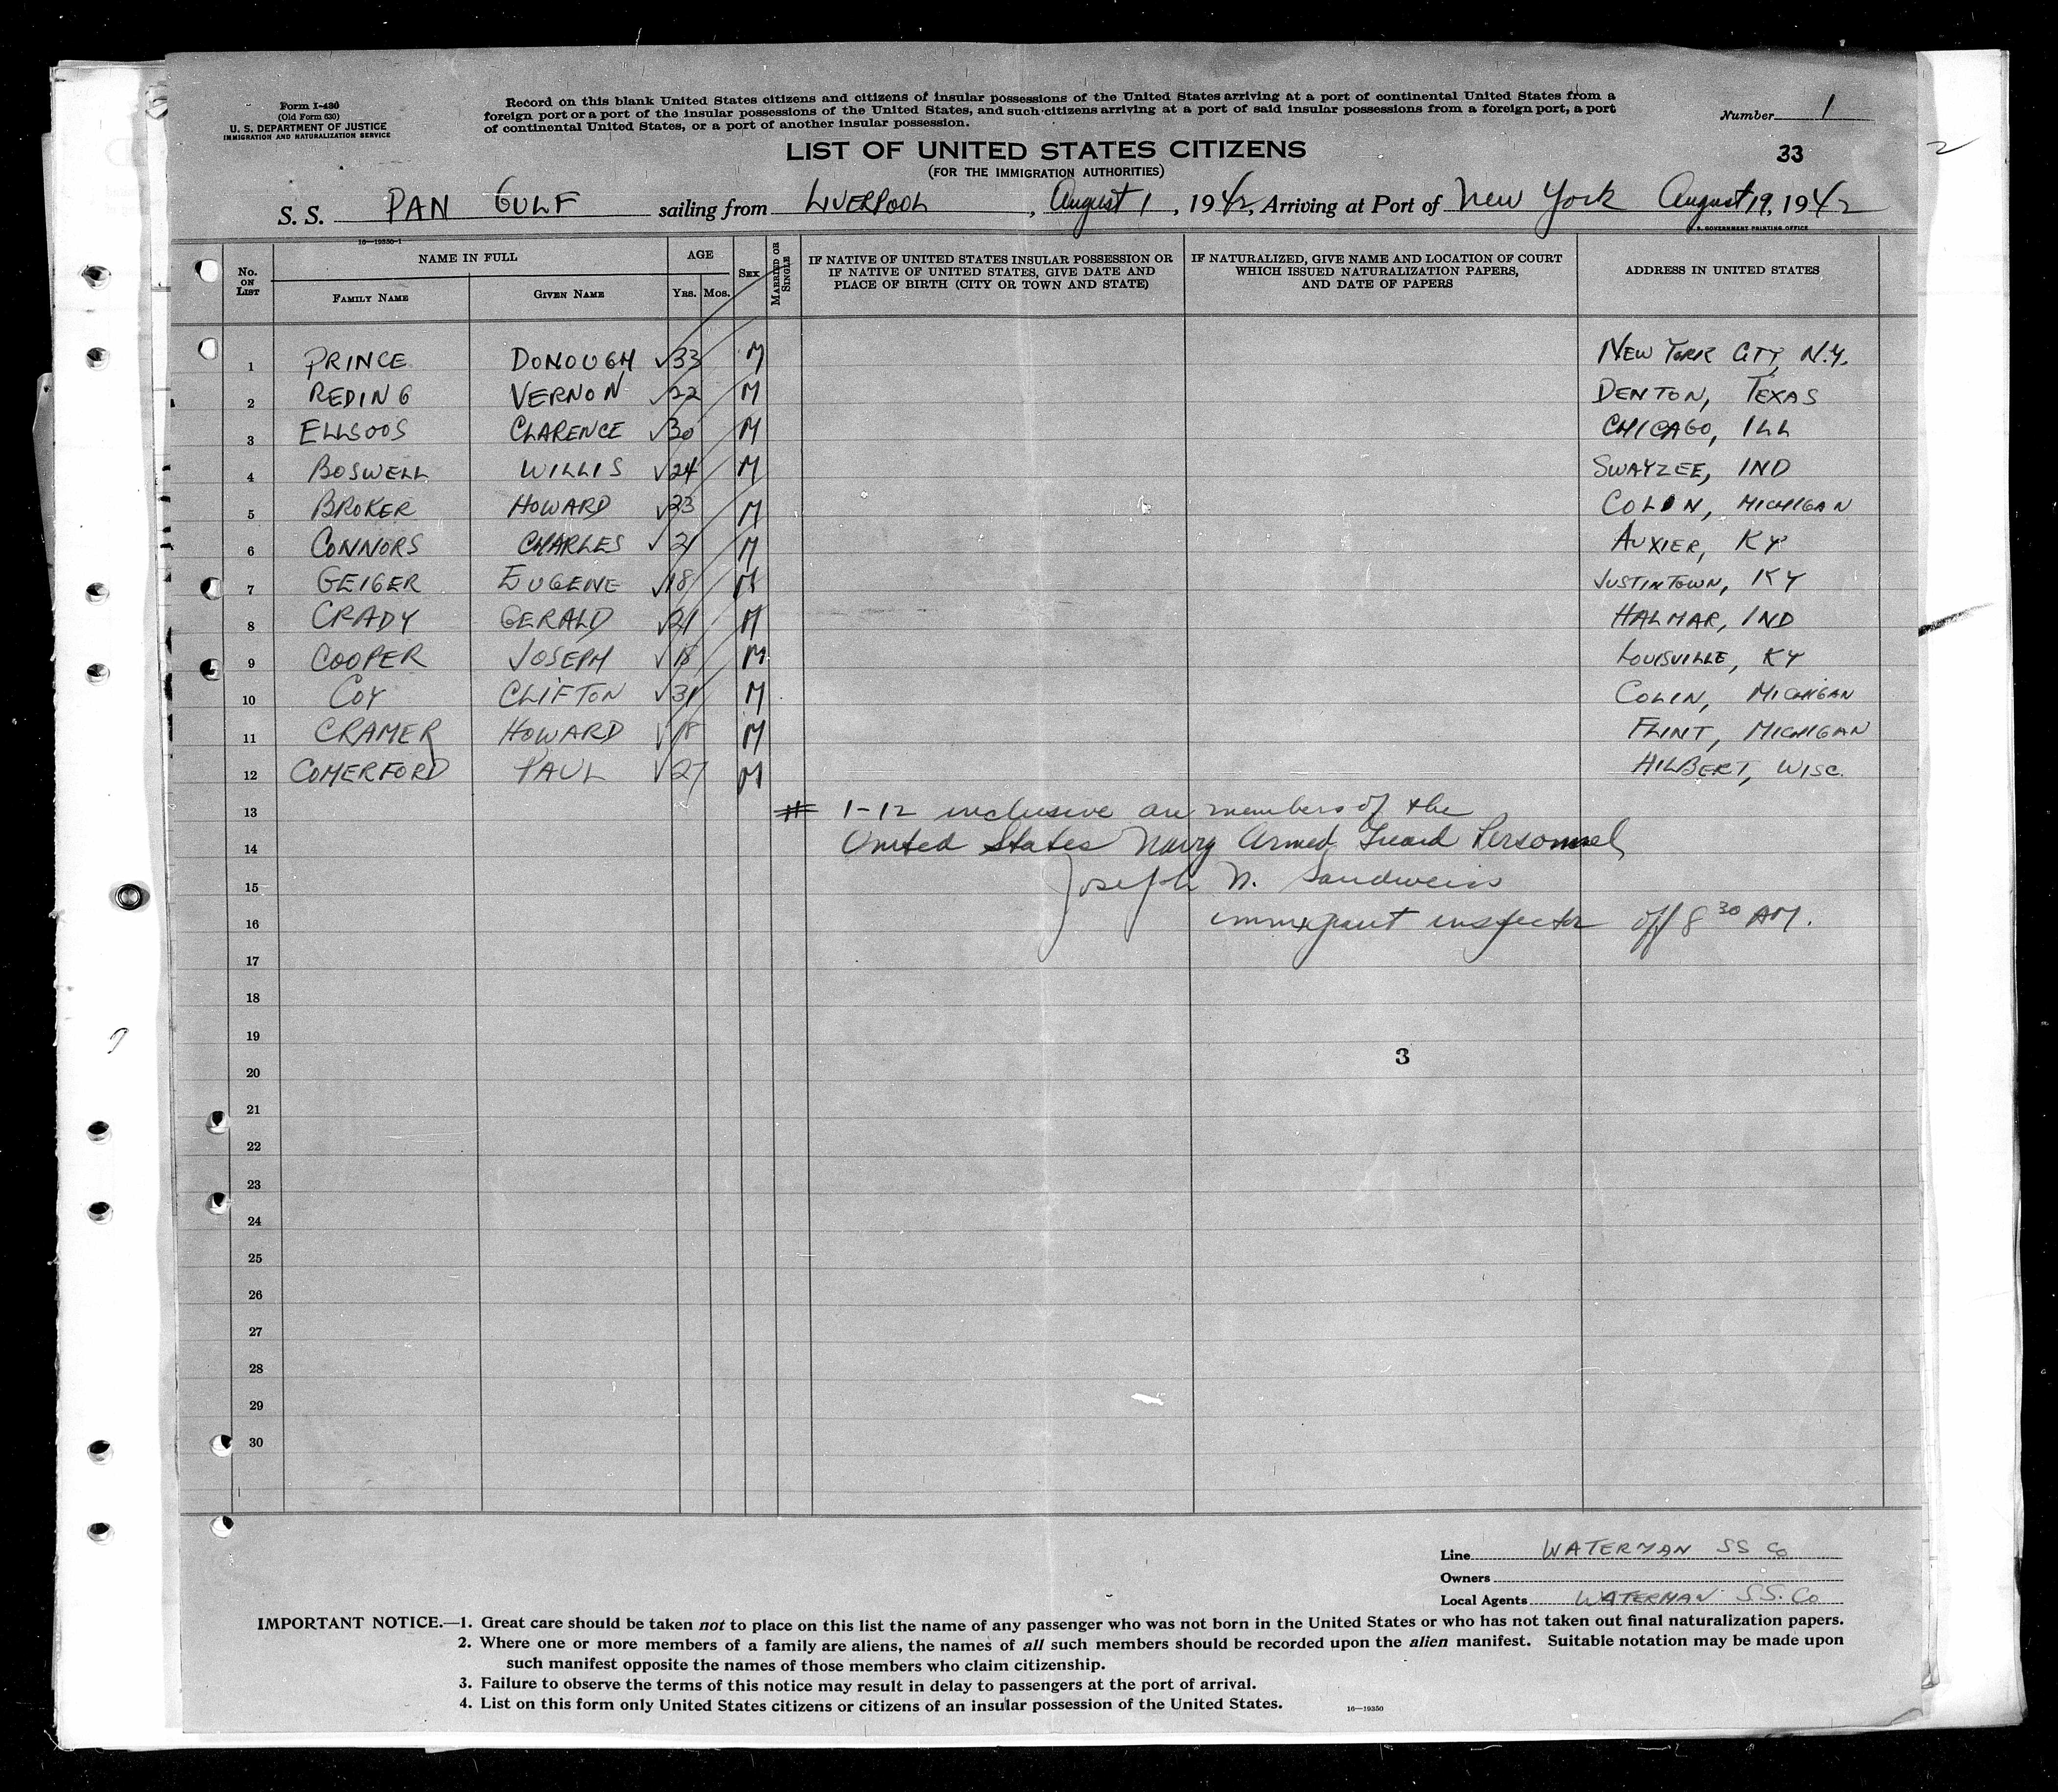 Form I-430
(Old Form 630)
U. S. DEPARTMENT OF JUSTICE
IMMIGRATION AND NATURALIZATION SERVICE
Record on this blank United States citizens and citizens of insular possessions of the United States arriving at a port of continental United States from a
foreign port or a port of the insular possessions of the United States, and such citizens arriving at a port of said insular possessions from a foreign port, a port
of continental United States, or a port of another insular possession.
Number 1
LIST OF UNITED STATES CITIZENS
33
2
(FOR THE IMMIGRATION AUTHORITIES)
S. S. PAN GULF sailing from LIVERPOOL, August 1, 1942, Arriving at Port of New York August 19, 1942
16—19350-1
U. S. GOVERNMENT PRINTING OFFICE
No. ON LIST
NAME IN FULL
FAMILY NAME
GIVEN NAME
AGE
YRS. MOS.
SEX
MARRIED OR SINGLE
IF NATIVE OF UNITED STATES INSULAR POSSESSION OR
IF NATIVE OF UNITED STATES, GIVE DATE AND
PLACE OF BIRTH (CITY OR TOWN AND STATE)
IF NATURALIZED, GIVE NAME AND LOCATION OF COURT
WHICH ISSUED NATURALIZATION PAPERS,
AND DATE OF PAPERS
ADDRESS IN UNITED STATES
1 PRINCE DONOUGH √33 M NEW YORK CITY, N.Y.
2 REDING VERNON √22 M DENTON, TEXAS
3 ELLSOOS CLARENCE √30 M CHICAGO, ILL
4 BOSWELL WILLIS √24 M SWAYZEE, IND
5 BROKER HOWARD √23 M COLIN, MICHIGAN
6 CONNORS CHARLES √21 M AUXIER, KY
7 GEIGER EUGENE √18 M JUSTINTOWN, KY
8 CRADY GERALD √21 M HALMAR, IND
9 COOPER JOSEPH √18 M LOUISVILLE, KY
10 COY CLIFTON √31 M COLIN, MICHIGAN
11 CRAMER HOWARD √18 M FLINT, MICHIGAN
12 COMERFORD PAUL √27 M HILBERT, WISC.
13 # 1-12 inclusive are members of the
14 United States Navy Armed Guard Personnel
15 Joseph N. Sandweiss
16 immigrant inspector off 8 30 AM.
17
18
19
3
20
21
22
23
24
25
26
27
28
29
30
Line WATERMAN SS Co
Owners
Local Agents WATERMAN S.S. Co
IMPORTANT NOTICE.—1. Great care should be taken not to place on this list the name of any passenger who was not born in the United States or who has not taken out final naturalization papers.
2. Where one or more members of a family are aliens, the names of all such members should be recorded upon the alien manifest. Suitable notation may be made upon
such manifest opposite the names of those members who claim citizenship.
3. Failure to observe the terms of this notice may result in delay to passengers at the port of arrival.
4. List on this form only United States citizens or citizens of an insular possession of the United States.
16—19350